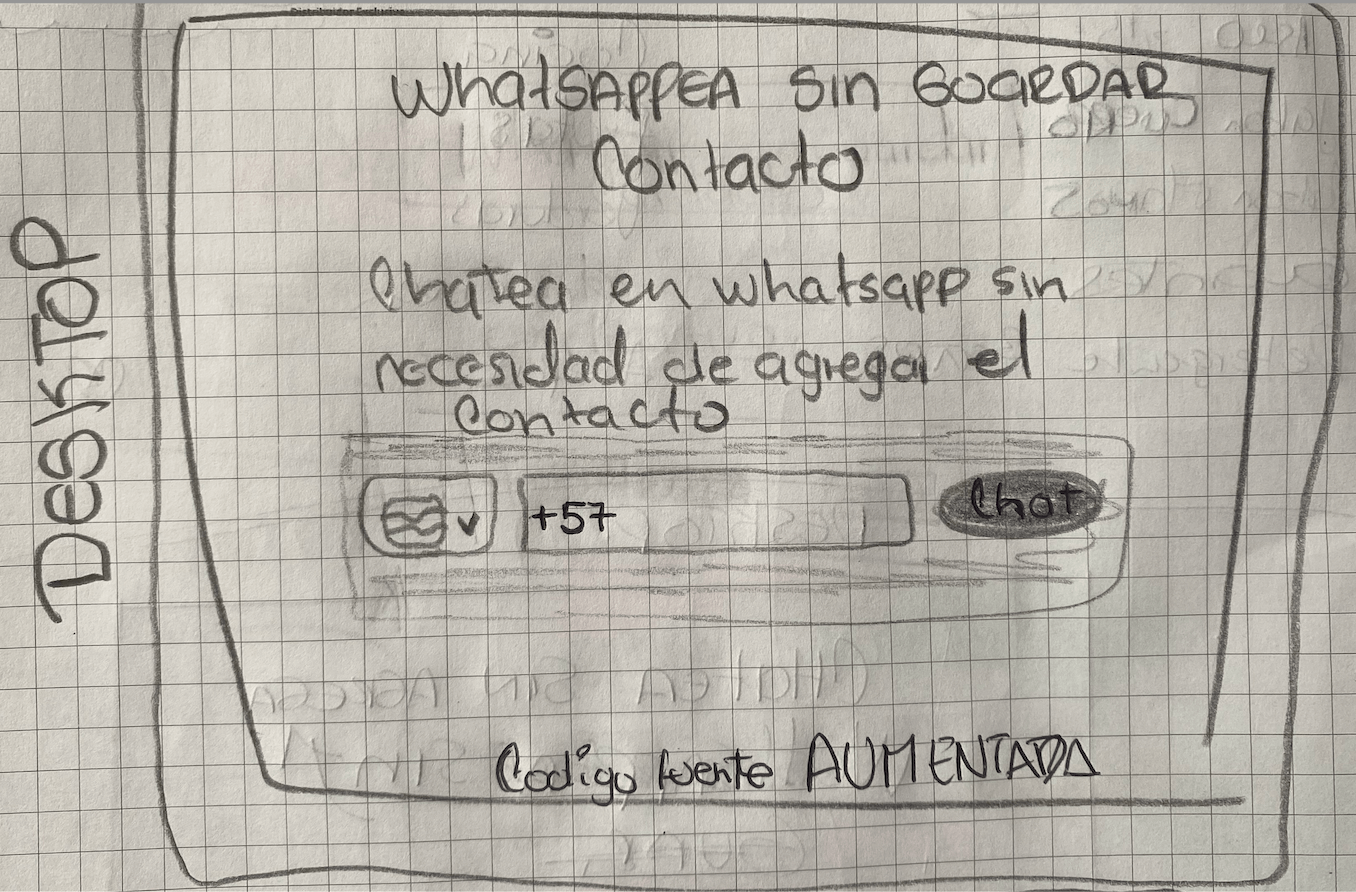 WhatSAPPEA Sin GUARDAR
Contacto
Chatea en whatsapp sin
necesidad de agregar el
Contacto
+57
Chat
Codigo fuente AUMENTADA
DESKTOP